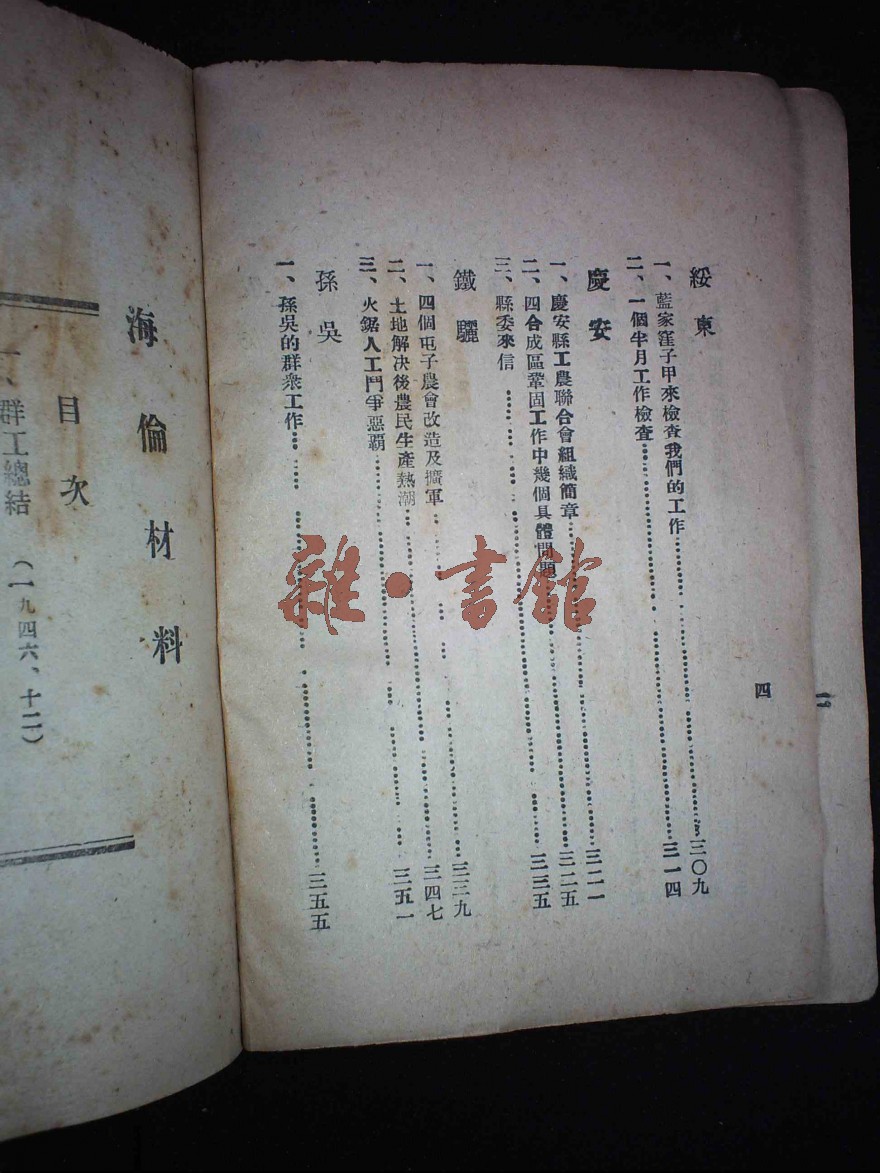 四
綏東
一、藍家窪子甲來檢查我們的工作……三〇九
二、一個半月工作檢查……三一四
慶安
一、慶安縣工農聯合會組織簡章……三二一
二、四合成區鞏固工作中幾個具體問題……三二五
三、縣委來信……三三五
鐵驪
一、四個屯子農會改造及擴軍……三三九
二、土地解決後農民生產熱潮……三四七
三、火鋸人工鬥爭惡霸……三五一
孫吳
一、孫吳的群衆工作……三五五
海倫材料
目次
一、群工總結(一九四六、十二)
雜·書館